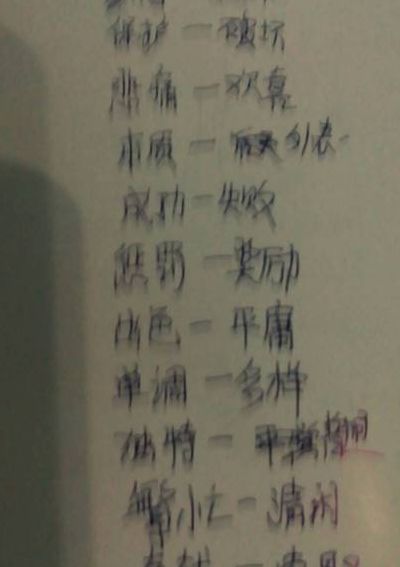 保护—破坏
悲痛—欢喜
本质—外表
成功—失败
惩罚—奖励
出色—平庸
单调—多样
独特—
繁忙—清闲